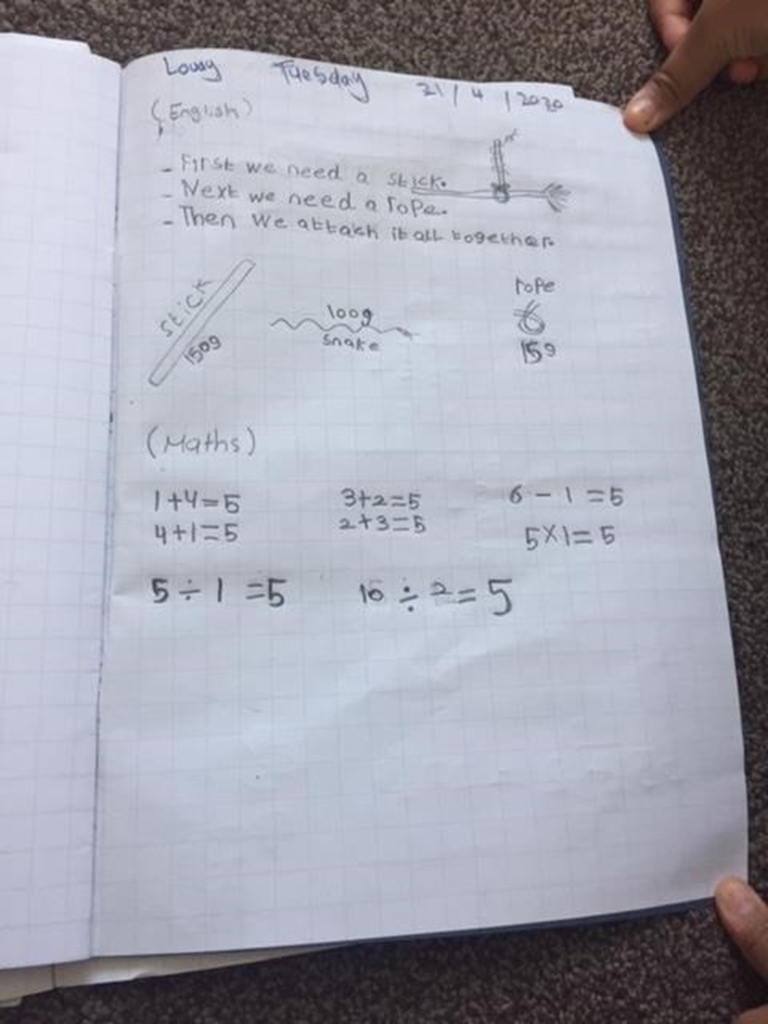 Tuesday 21/4/2020
(English)
- First we need a stick.
- Next we need a rope.
- Then we attach it all together.
stick
150g
100g
snake
rope
15g
(Maths)
1+4=5 3+2=5 6-1=5
4+1=5 2+3=5 5×1=5
5÷1=5 10÷2=5